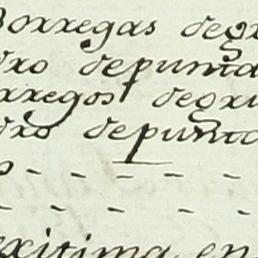 Borregas degr
dro depunta
rregos degru
dro depunta
exitima en